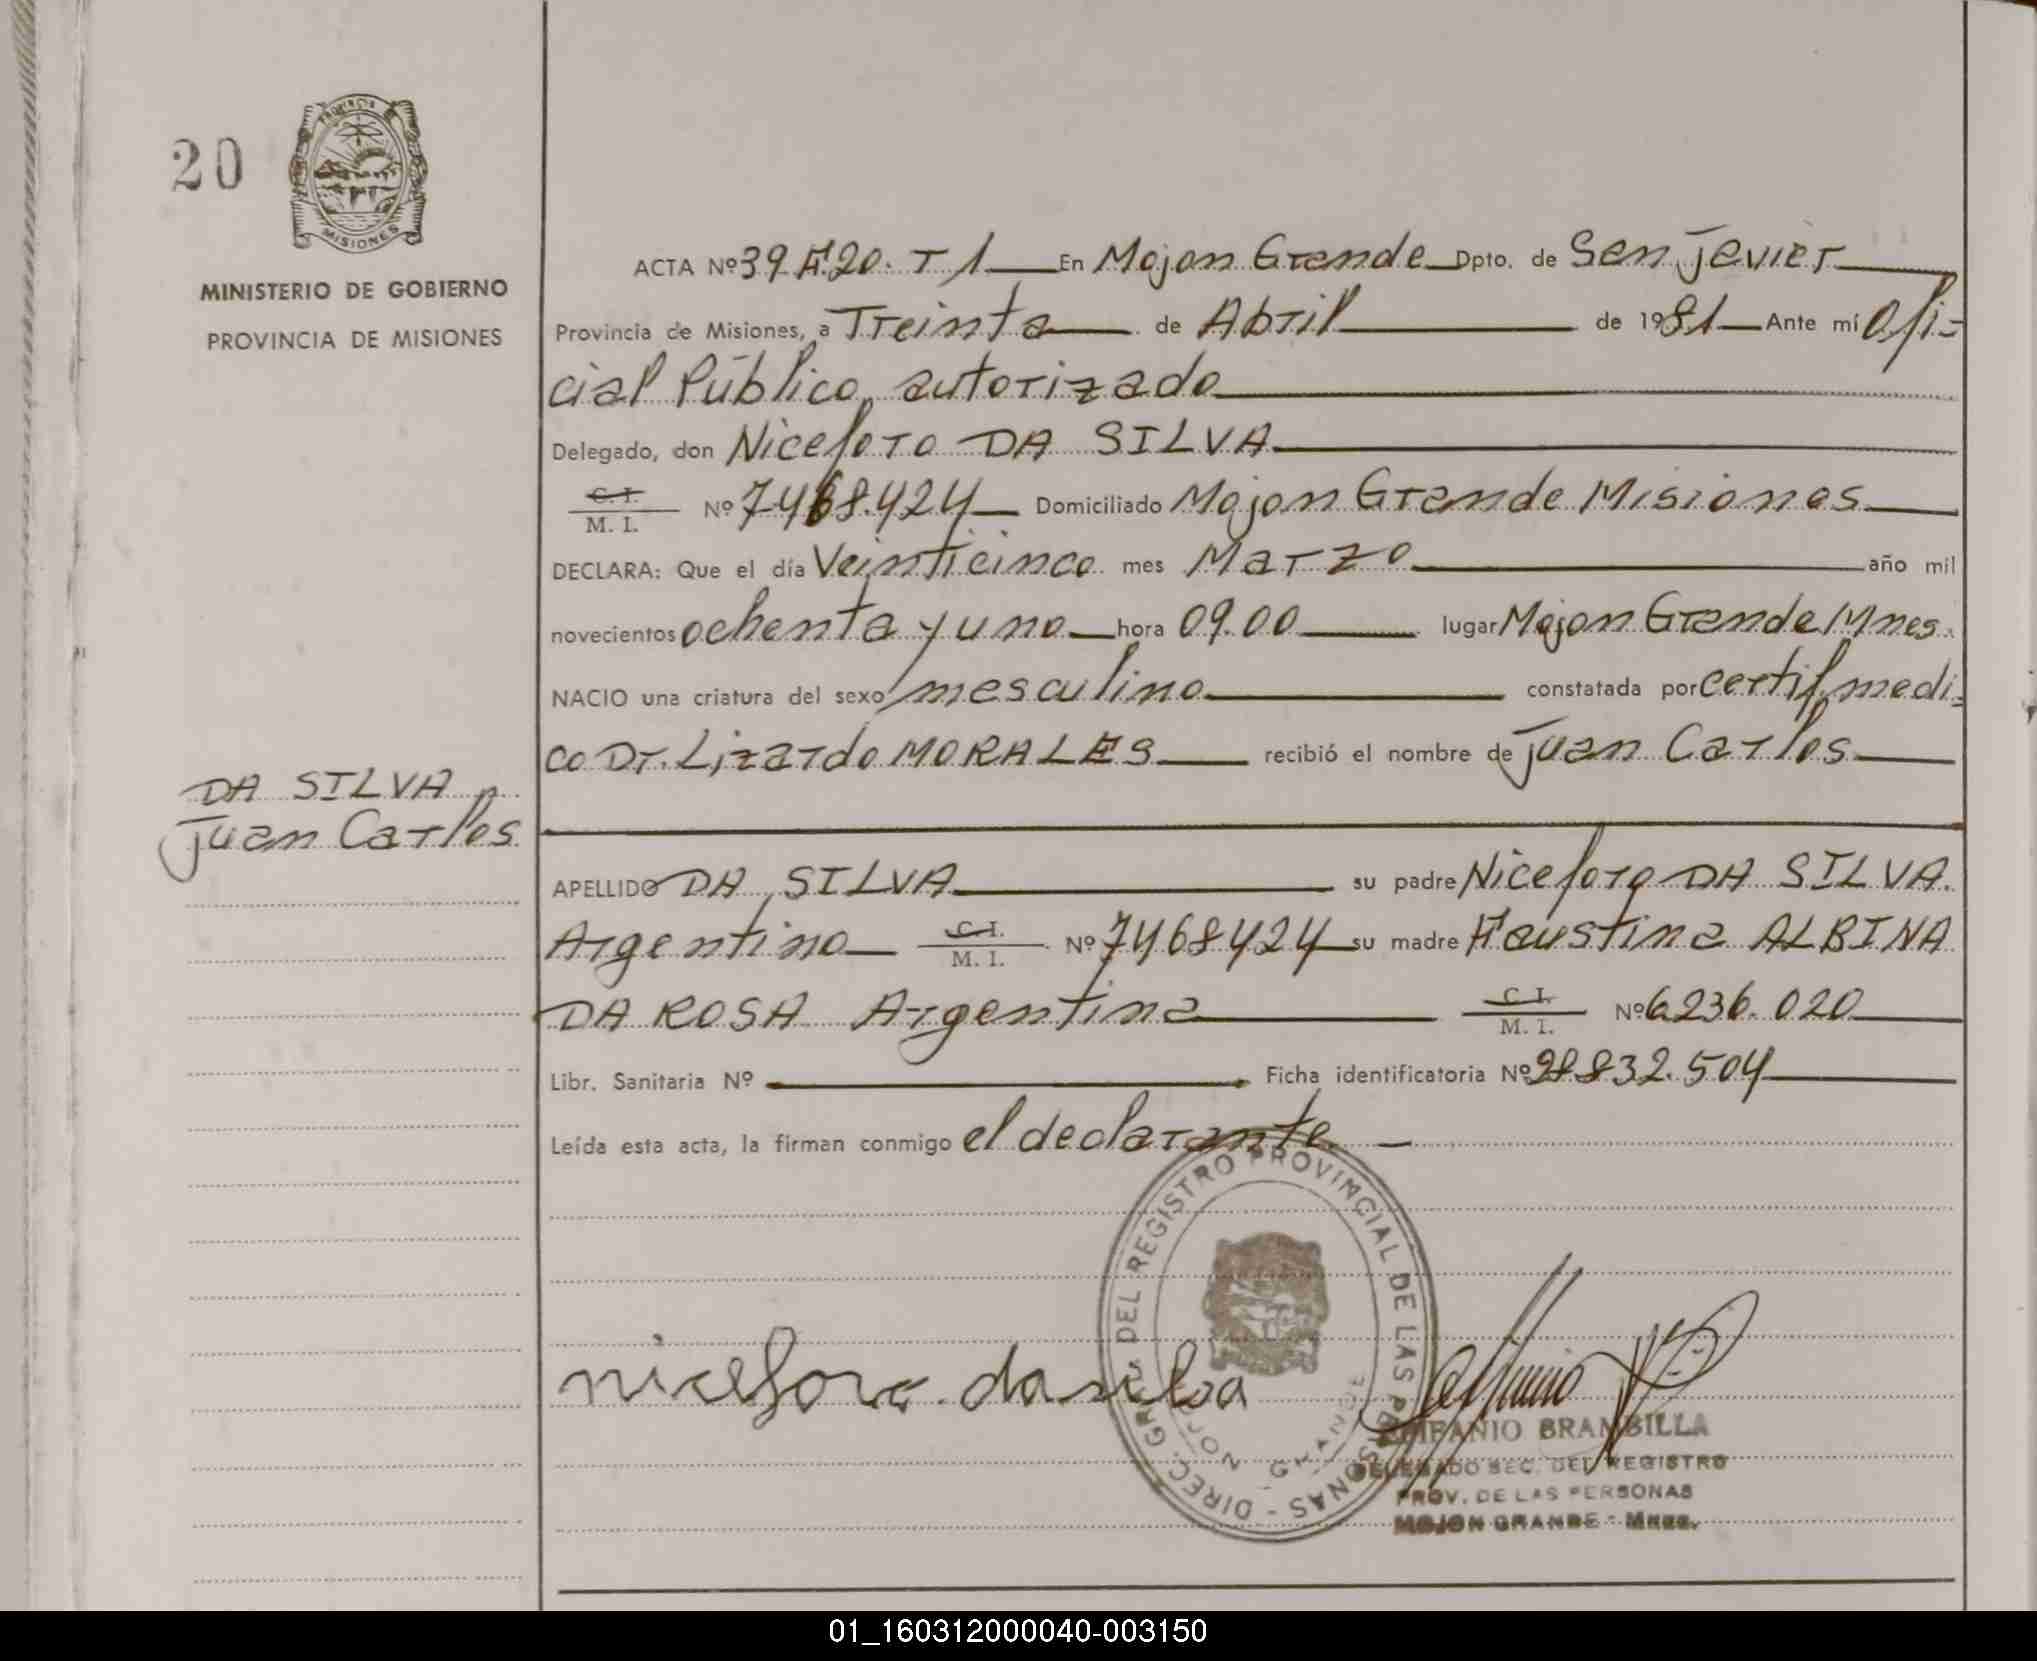 20
PROVINCIA
MISIONES
MINISTERIO DE GOBIERNO
PROVINCIA DE MISIONES
DA SILVA
Juan Carlos
ACTA Nº 39 F.20. T 1 En Mojon Grande Dpto. de San Javier
Provincia de Misiones, a Treinta de Abril de 1981 Ante mí Ofi-
cial Público autorizado
Delegado, don Niceforo DA SILVA
C. I. / M. I. Nº 7468.424 Domiciliado Mojon Grande Misiones
DECLARA: Que el día Veinticinco mes Marzo año mil
novecientos ochenta y uno hora 09.00 lugar Mojon Grande Mnes.
NACIO una criatura del sexo masculino constatada por certif. medi-
co Dr. Lizardo MORALES recibió el nombre de Juan Carlos
APELLIDO DA SILVA su padre Niceforo DA SILVA.
Argentino C. I. / M. I. Nº 7468424 su madre Faustina ALBINA
DA ROSA Argentina C. I. / M. I. Nº 6.236.020
Libr. Sanitaria Nº Ficha identificatoria Nº 28.832.504
Leída esta acta, la firman conmigo el declarante
DIREC. GRAL. DEL REGISTRO PROVINCIAL DE LAS PERSONAS -
MOJON GRANDE
niceforo da silva
EPIFANIO BRAMBILLA
DELEGADO SEC. DEL REGISTRO
PROV. DE LAS PERSONAS
MOJON GRANDE - Mnes.
01_160312000040-003150